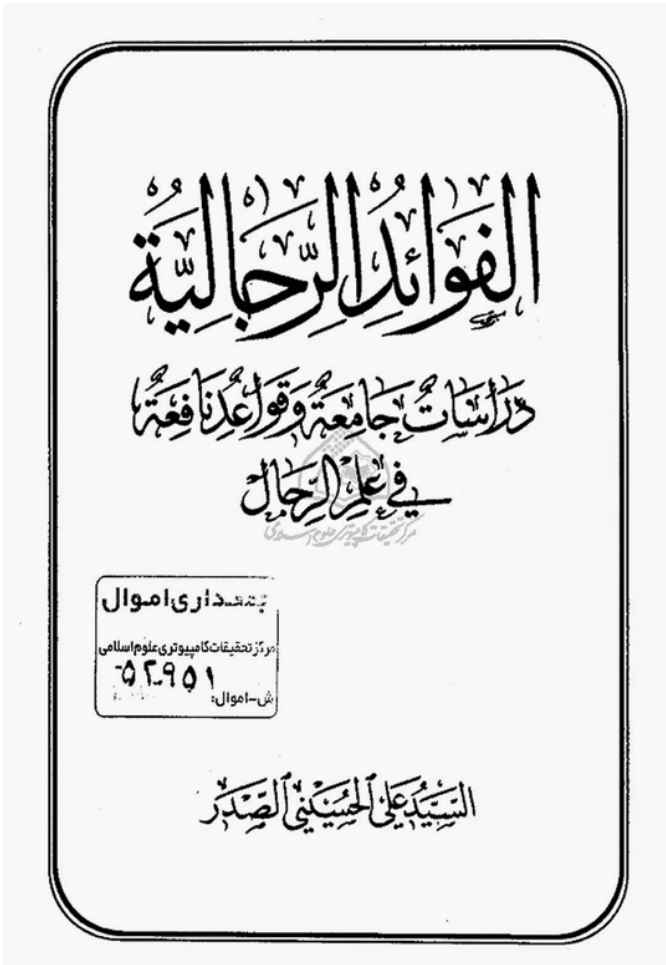 الفَوَائِدُ الرِّجَالِيَّةُ
دِرَاسَاتٌ جَامِعَةٌ وَقَوَاعِدُ نَافِعَةٌ
فِي عِلْمِ الرِّجَالِ
مرکز تحقیقات کامپیوتری علوم اسلامی
جمعداری اموال
مرکز تحقیقات کامپیوتری علوم اسلامی
ش-اموال:
السَّيِّدُ عَلِيٌّ الحُسَيْنِيُّ الصَّدْر